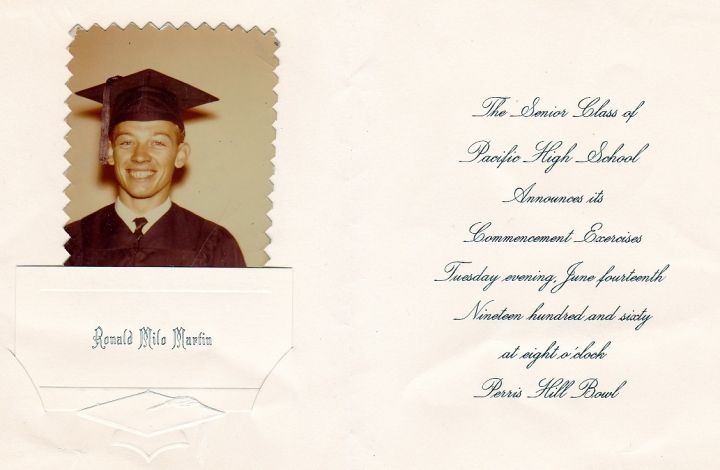 Ronald Milo Martin
The Senior Class of
Pacific High School
Announces its
Commencement Exercises
Tuesday evening, June fourteenth
Nineteen hundred and sixty
at eight o'clock
Perris Hill Bowl